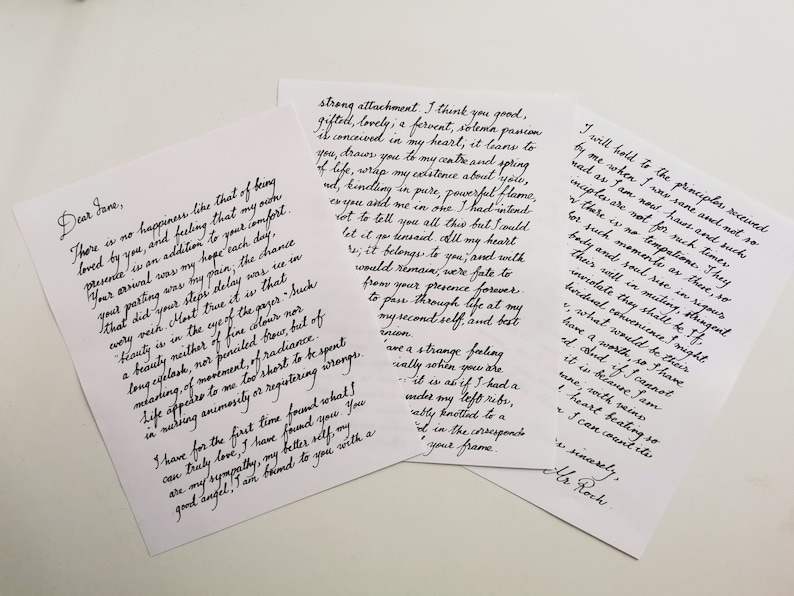 Dear Jane,
There is no happiness like that of being
loved by you, and feeling that my own
presence is an addition to your comfort.
Your arrival was my hope each day,
your parting was my pain; the chance
that did your steps delay was ice in
every vein. Most true it is that
"beauty is in the eye of the gazer - Such
a beauty neither of fine colour nor
long eyelash, nor penciled brow, but of
meaning, of movement, of radiance.
Life appears to me too short to be spent
in nursing animosity or registering wrongs.
I have for the first time found what I
can truly love, I have found you. You
are my sympathy, my better self, my
good angel, I am bound to you with a
strong attachment. I think you good,
gifted, lovely; a fervent, solemn passion
is conceived in my heart; it leans to
you, draws you to my centre and spring
of life, wrap my existence about you,
nd, kindling in pure, powerful flame,
es you and me in one. I had intend
not to tell you all this but I could
let it go unsaid. All my heart
rs; it belongs to you; and with
would remain, were fate to
from your presence forever.
to pass through life at my
my second self, and best
nion.
ave a strange feeling
cially when you are
it is as if I had a
under my left ribs,
cably knotted to a
d in the corresponds
your frame.
I will hold to the principles received
by me when I was sane and not so
mad as I am now. haws and such
inciples are not for such times
n there is no temptation. They
for such moments as these, so
body and soul rise in rigours
their will in muting, stringent
inviolate they shall be. If,
dividual convenience I might
, what would be their
have a worth, so I have
d. And, if I cannot
it is because I am
ane: with veins
heart beating so
n I can count its
s sincerely,
Mr Roch.